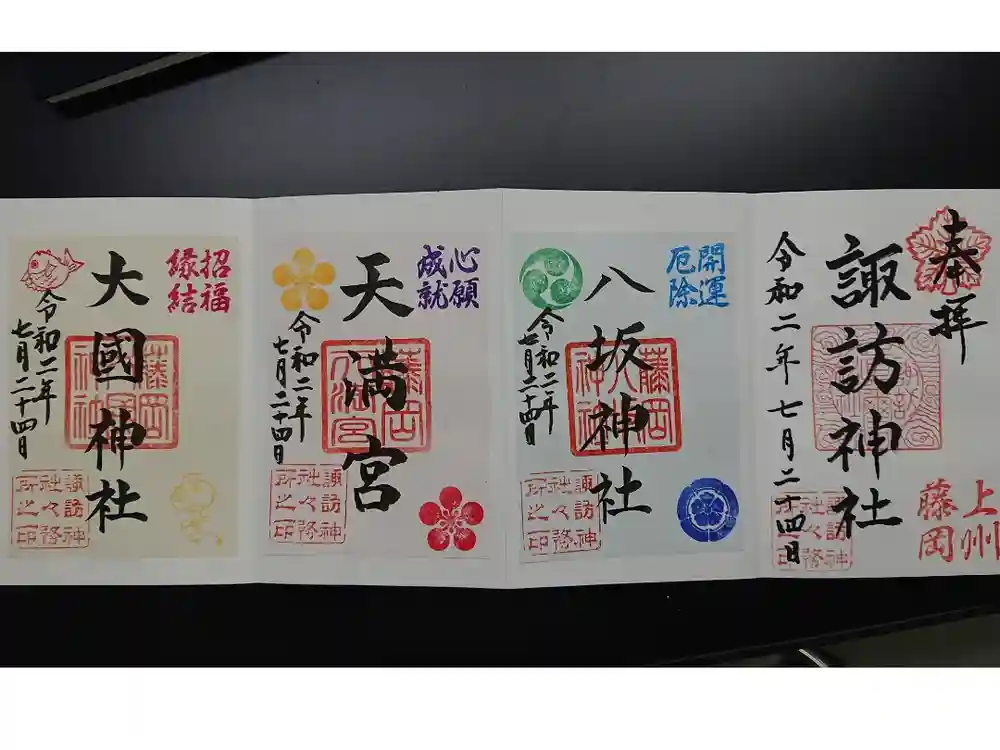 奉拝
上州
藤岡
諏訪神社
令和二年七月二十四日
開運
厄除
八坂神社
藤岡
令和二年
七月二十四日
諏訪神
社々務
所之印
心願
成就
天満宮
藤岡
令和二年
七月二十四日
諏訪神
社々務
所之印
招福
縁結
大國神社
藤岡
令和二年
七月二十四日
諏訪神
社々務
所之印